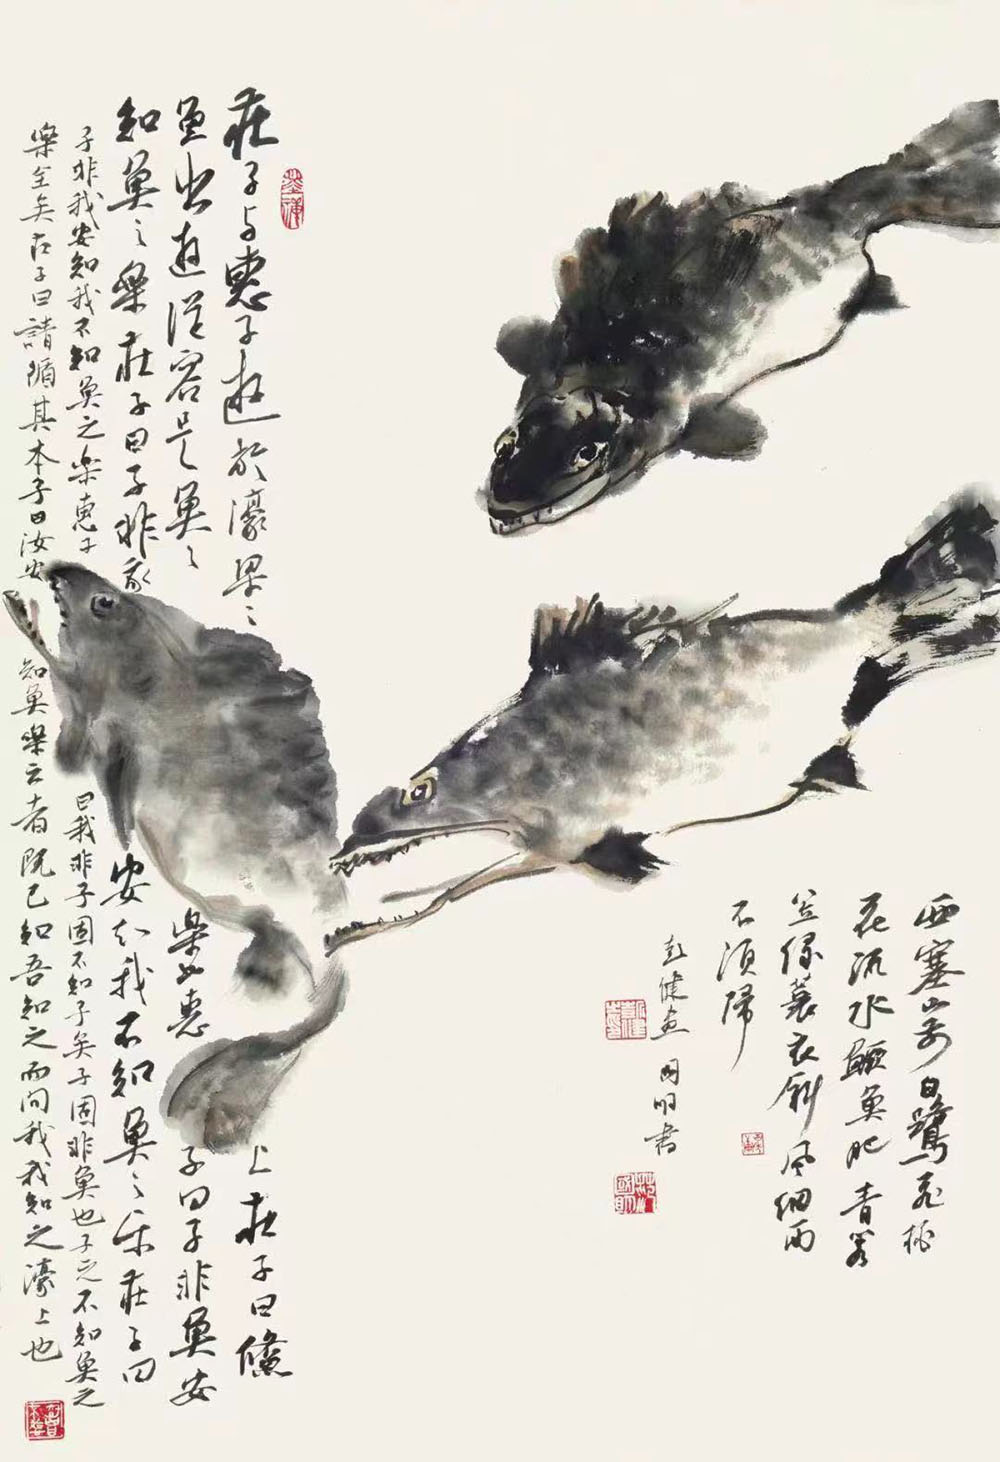 西塞山前白鷺飛桃
花流水鱖魚肥青箬
笠綠蓑衣斜風細雨
不須歸
彭健画 国明書
莊子与惠子遊於濠梁之上莊子曰鯈
魚出遊從容是魚之樂也惠子曰子非魚安
知魚之樂莊子曰子非我安知我不知魚之乐莊子曰
子非我安知我不知魚之樂惠子曰我非子固不知子矣子固非魚也子之不知魚之
樂全矣莊子曰請循其本子曰汝安知魚樂云者既已知吾知之而問我我知之濠上也